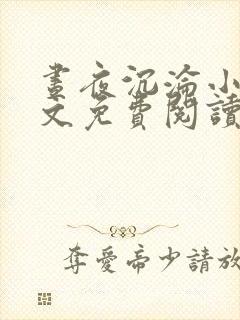 晝夜沉淪小
文免費閱讀
奪愛帝少請放